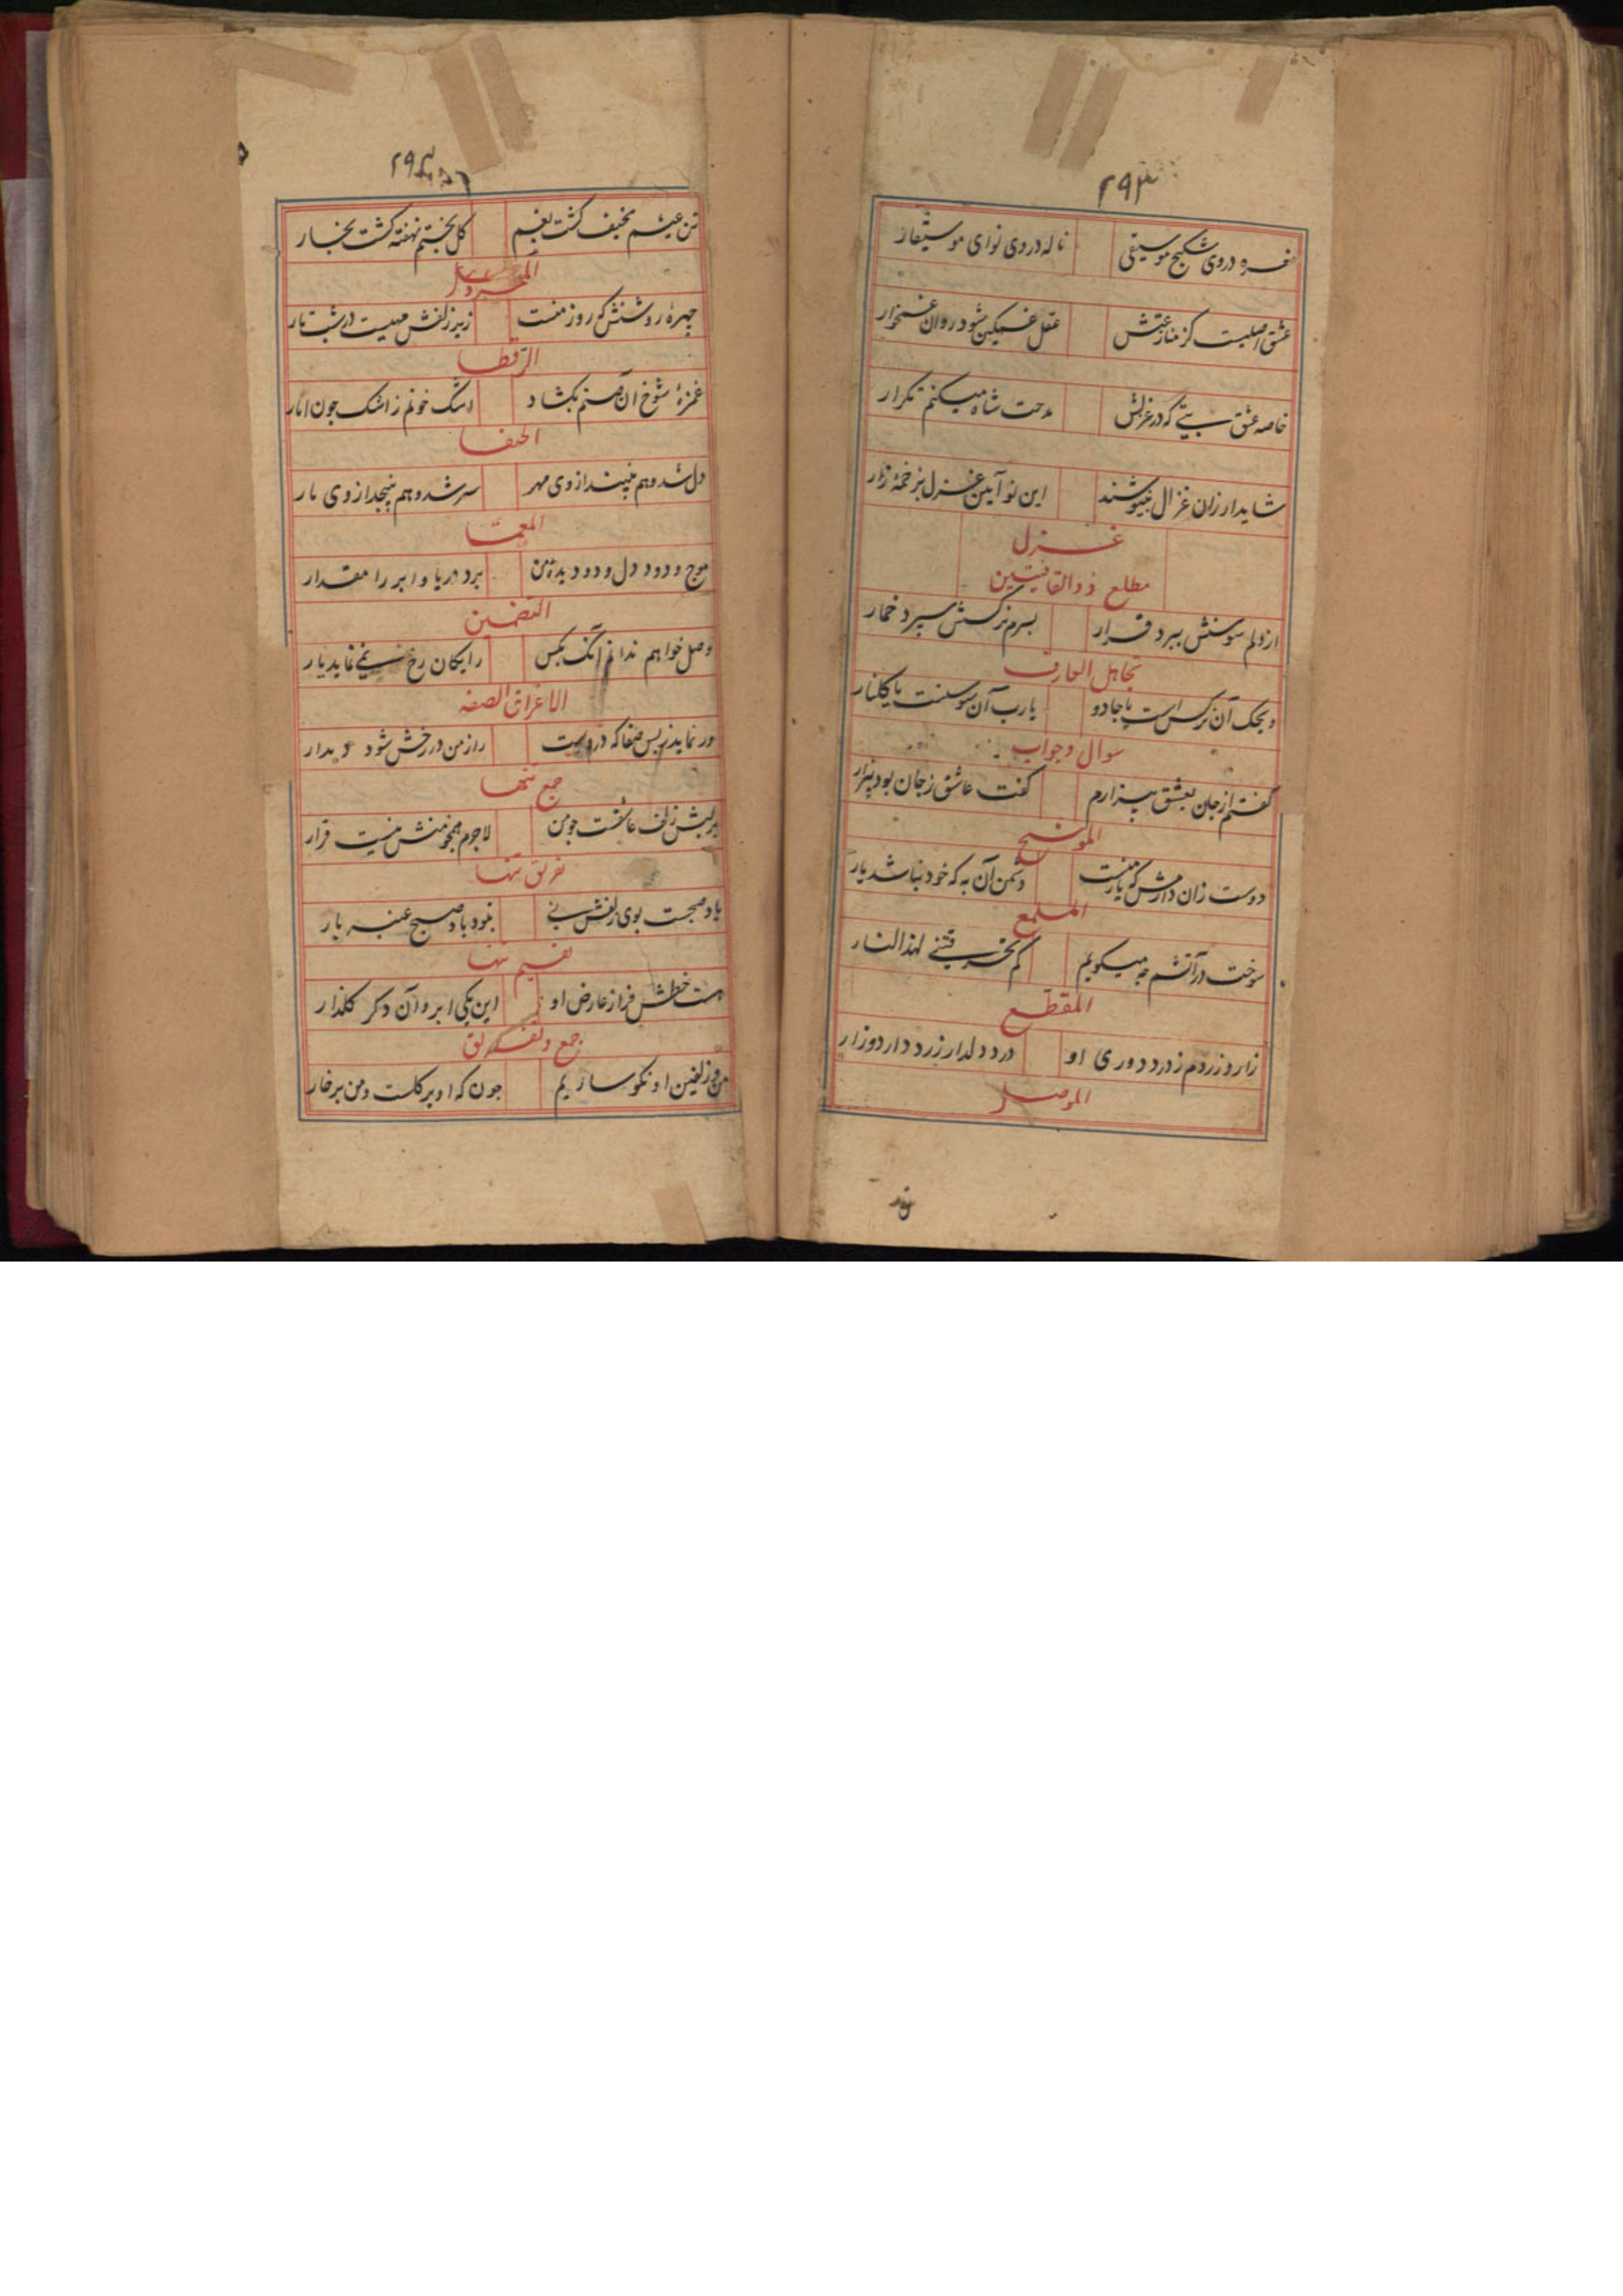 ۲۹۳
نعره در وی شکنج موسیقی ناله در وی نوای موسیقار
عشق اصلیست کز منازعتش عقل غمگین شود روان غمخوار
خاصه عشق بتی که در غزلش مدحت شاه میکنم تکرار
شاید ار زان غزال بنیوشند این نو آیین غزل بزخمهٔ زار
غزل
مطلع ذوالقافیتین
از دلم سوسنش ببرد قرار بسرم نرگسش سپرد خمار
تجاهل العارف
ویحک آن نرگس است یا جادو یارب آن سوسنست یا گلنار
سوال و جواب
گفتم از جان بعشق بیزارم گفت عاشق ز جان بود بیزار
الموشح
دوست زان دارمش که یار منست دشمن آن به که خود نباشد یار
الملمع
سوخت در آتشم چه میگویم کم تحرقتنی لهذا النار
المقطع
زار و زردم ز درد دوری او درد دلدار زرد دارد و زار
الموصل
تن
۲۹۴
تن عیشم نحیف گشت بغم گل بختم نهفته گشت بخار
المجرد
چهرهٔ روشنش که روز منست زیر زلفش مهیست در شب تار
الرقطا
غمزهٔ شوخ آن صنم بگشاد اشک خونم ز اشک چون انار
الخیفا
دل شد و هم نبیند از وی مهر سر شد و هم نپیچد از وی یار
المعما
موج و دود دل و دو دیدهٔ من برد دریا و ابر را مقدار
التضمین
وصل خواهم ندانم آنک بکس رایگان رخ نمی نماید یار
الاغراق الصفه
ور نماید ز بس صفا که دروست راز من در رخش شود دیدار
جمع تنها
بر لبش زلف عاشقست چو من لاجرم همچو منش نیست قرار
تفریق تنها
باد صبحست بوی زلفش نی نبود باد صبح عنبر بار
تقسیم تنها
هست خطش فراز عارض او این یکی ابر و آن دگر گلزار
جمع و تفریق
من و زلفین او نگوساریم چون که او بر گلست و من بر خار